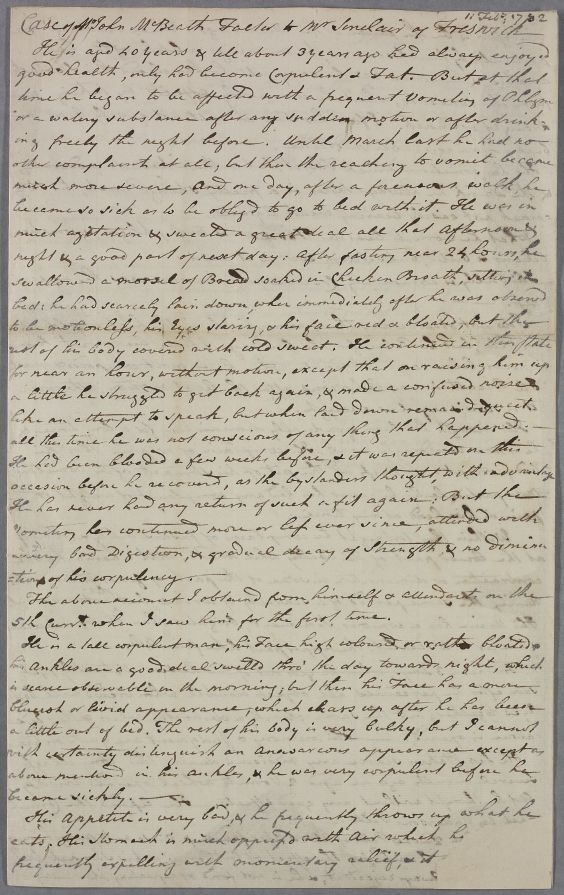 11 Feb.
Case of Mr John McBeath Factor to Mr Sinclair of Freswick
He is aged 40 years & till about 3 years ago had always enjoyed
good health, only had become Corpulent & Fat. But at that
time he began to be affected with a frequent Vomiting of Phlegm
or a watery substance after any sudden motion or after drink-
ing freely the night before. Until March last he had no
other complaints at all, but then the reaching to vomit became
much more severe, and one day, after a forenoons walk, he
became so sick as to be obliged to go to bed with it. He was in
much agitation & sweated a great deal all that afternoon &
night & a good part of next day: After fasting near 24 hours, he
swallowed a morsel of Bread soaked in Chicken Broath, sitting in
bed: he had scarcely lain down when immediately after he was observed
to be motionless, his Eyes staring, & his face red & bloated, but the
rest of his body covered with cold sweat. He continued in this state
for near an hour, without motion, except that on raising him up
a little he struggled to get back again, & made a confused noise
like an attempt to speak, but when laid down remained quiet.
all the time he was not conscious of any thing that happened. —
He had been blooded a few weeks before, & it was repeated on this
occasion before he recovered, as the bystanders thought with advantage
He has never had any return of such a fit again: But the
vomiting has continued more or less ever since, attended with
very bad Digestion, & gradual decay of Strength & no diminu
=tion of his corpulency. —
The above account I obtained from himself & attendant on the
5th Currt. when I saw him for the first time.
He is a tall corpulent man, his Face high coloured, or rather bloated,
his ankles are a good deal swelled thro' the day towards night, which
is scarce observable in the morning, but then his Face has a more
blueish or livid appearance, which clears up after he has been
a little out of bed. The rest of his body is very bulky, but I cannot
with certainty distinguish an anasarcous appearance except as
above mentioned in his ankles, & he was very corpulent before he
became sickly. —
His Appetite is very bad, & he frequently throws up what he
eats; His Stomach is much oppressed with Air which he
frequently expelling with momentary relief & it